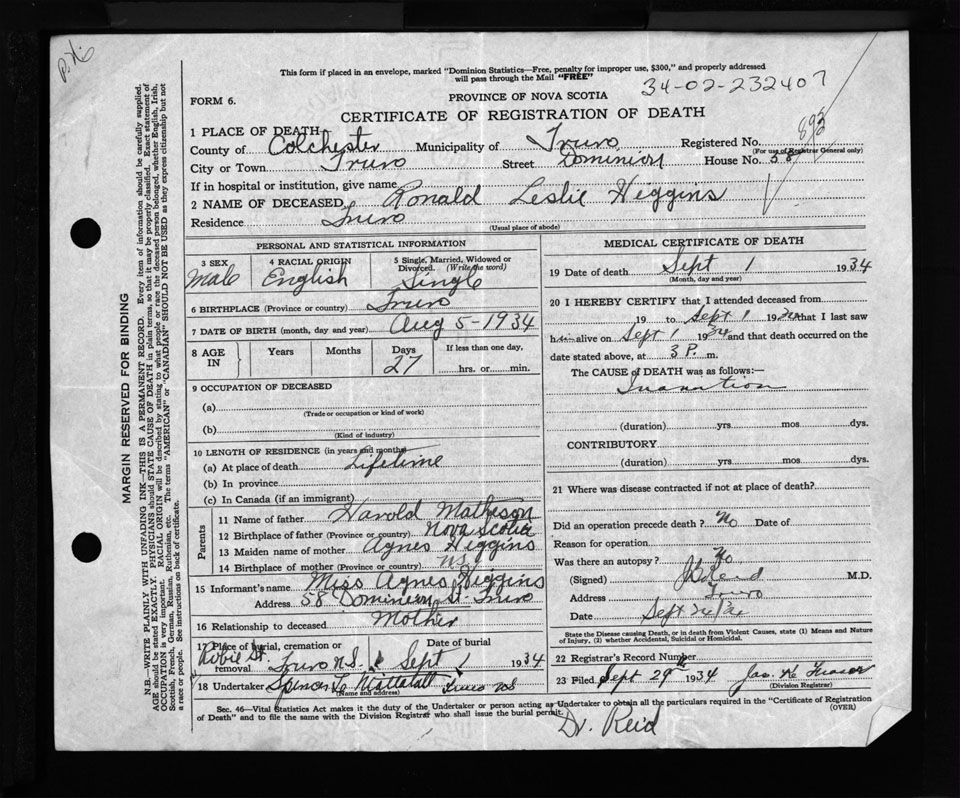 P.H.
This form if placed in an envelope, marked "Dominion Statistics—Free, penalty for improper use, $300," and properly addressed
will pass through the Mail "FREE"
34-02-232407
FORM 6.
PROVINCE OF NOVA SCOTIA
CERTIFICATE OF REGISTRATION OF DEATH
893
1 PLACE OF DEATH
County of Colchester Municipality of Truro Registered No.
(For use of Registrar General only)
City or Town Truro Street Dominion House No. 58
If in hospital or institution, give name
2 NAME OF DECEASED Ronald Leslie Higgins
Residence Truro
(Usual place of abode)
PERSONAL AND STATISTICAL INFORMATION
3 SEX 4 RACIAL ORIGIN 5 Single, Married, Widowed or Divorced. (Write the word)
Male English Single
6 BIRTHPLACE (Province or country) Truro
7 DATE OF BIRTH (month, day and year) Aug 5-1934
8 AGE IN Years Months Days If less than one day,
27 hrs. or min.
9 OCCUPATION OF DECEASED
(a)
(Trade or occupation or kind of work)
(b)
(Kind of industry)
10 LENGTH OF RESIDENCE (in years and months)
(a) At place of death Lifetime
(b) In province
(c) In Canada (if an immigrant)
Parents
11 Name of father Harold Matheson
12 Birthplace of father (Province or country) Nova Scotia
13 Maiden name of mother Agnes Higgins
14 Birthplace of mother (Province or country) N.S.
15 Informant's name Miss Agnes Higgins
Address 58 Dominion St. Truro
16 Relationship to deceased Mother
17 Place of burial, cremation or removal Date of burial
Robie St. Truro N.S. Sept 1 1934
18 Undertaker Spencer Mattatall Truro NS
(Name and address)
MEDICAL CERTIFICATE OF DEATH
19 Date of death Sept 1 1934
(Month, day and year)
20 I HEREBY CERTIFY that I attended deceased from
19 to Sept 1 1934 that I last saw
him alive on Sept 1 1934 and that death occurred on the
date stated above, at 3 P. m.
The CAUSE of DEATH was as follows:—
Inanition
(duration) yrs mos dys.
CONTRIBUTORY
(duration) yrs mos dys.
21 Where was disease contracted if not at place of death?
Did an operation precede death? No Date of
Reason for operation
Was there an autopsy? No
(Signed) Reid M.D.
Address Truro
Date Sept 24/34
State the Disease causing Death, or in death from Violent Causes, state (1) Means and Nature
of Injury, (2) whether Accidental, Suicidal or Homicidal.
22 Registrar's Record Number
23 Filed Sept 29th 1934 Jas. H. Fraser
(Division Registrar)
Sec. 46—Vital Statistics Act makes it the duty of the Undertaker or person acting as Undertaker to obtain all the particulars required in the "Certificate of Registration
of Death" and to file the same with the Division Registrar who shall issue the burial permit.
(OVER)
Dr. Reid
MARGIN RESERVED FOR BINDING
N.B.—WRITE PLAINLY WITH UNFADING INK—THIS IS A PERMANENT RECORD. Every item of information should be carefully supplied.
AGE should be stated EXACTLY. PHYSICIANS should STATE CAUSE OF DEATH in plain terms, so that it may be properly classified. Exact statement of
OCCUPATION is very important. RACIAL ORIGIN will be described by stating to what people or race the deceased person belonged, whether English, Irish,
Scottish, French, German, Russian, Ruthenian, etc. The terms "AMERICAN" or "CANADIAN" SHOULD NOT BE USED as they express citizenship but not
a race or people. See instructions on back of certificate.